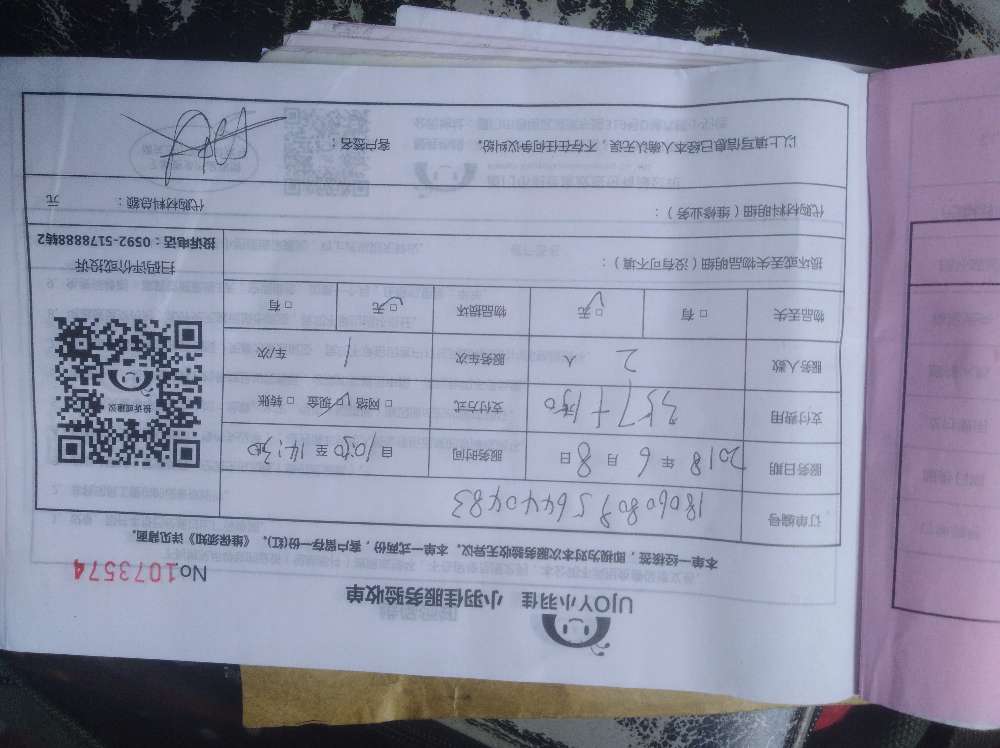 UJOY小羽佳 小羽佳服务验收单
No.1073574
本单一经接签，即视为对本次服务验收无异议。本单一式两份，客户留存一份(红)，《维保须知》详见背面。
订单编号 1806080956440483
服务日期 2018 年 6 月 8 日 服务时间 自 10:50 至 14:30
支付费用 支付方式 □ 网络 □ 现金 □ 转账
服务人数 2 人 服务车次 1 车/次
物品丢失 □ 有 □ 无 物品损坏 □ 无 □ 有
投诉或建议
扫码评价或投诉
投诉电话：0592-5178888转2
损坏或丢失物品明细（没有可不填）：
代购材料明细（维修业务）： 代购材料总额： 元
以上填写信息已经本人确认无误，不存在任何争议纠纷。 客户签名：